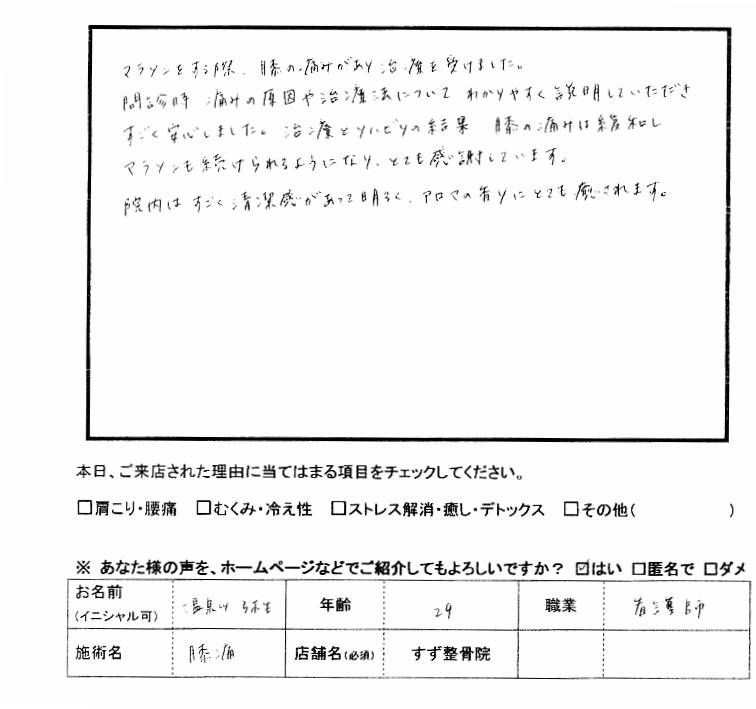 マラソンをする際、膝の痛みがあり治療を受けました。
問診時 痛みの原因や治療法について わかりやすく説明していただき
すごく安心しました。治療とリハビリの結果 膝の痛みは緩和し
マラソンも続けられるようになり、とても感謝しています。
院内はすごく清潔感があって明るく、アロマの香りにとても癒されます。
本日、ご来店された理由に当てはまる項目をチェックしてください。
□肩こり・腰痛 □むくみ・冷え性 □ストレス解消・癒し・デトックス □その他( )
※ あなた様の声を、ホームページなどでご紹介してもよろしいですか？ ☑はい □匿名で □ダメ
お名前 年齢 29 職業 看護師
(イニシャル可)
施術名 膝痛 店舗名(必須) すず整骨院